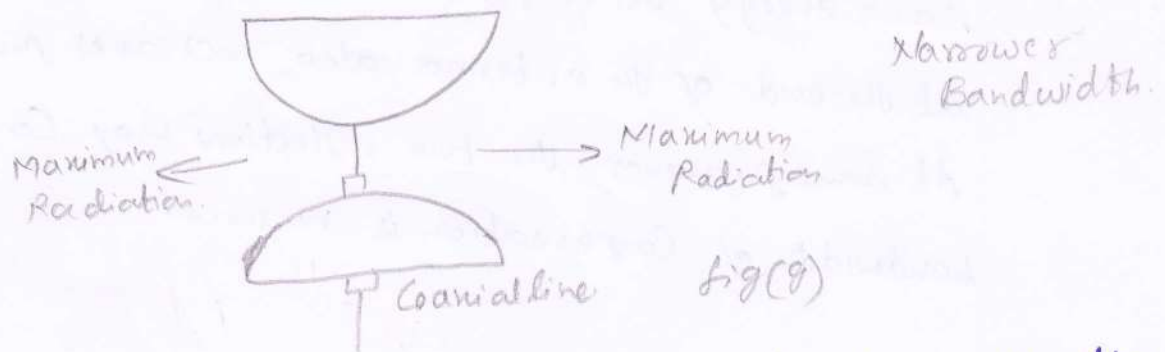 Narrower
Bandwidth.
Maximum
Radiation.
Maximum
Radiation
Coaxial line
fig(g)